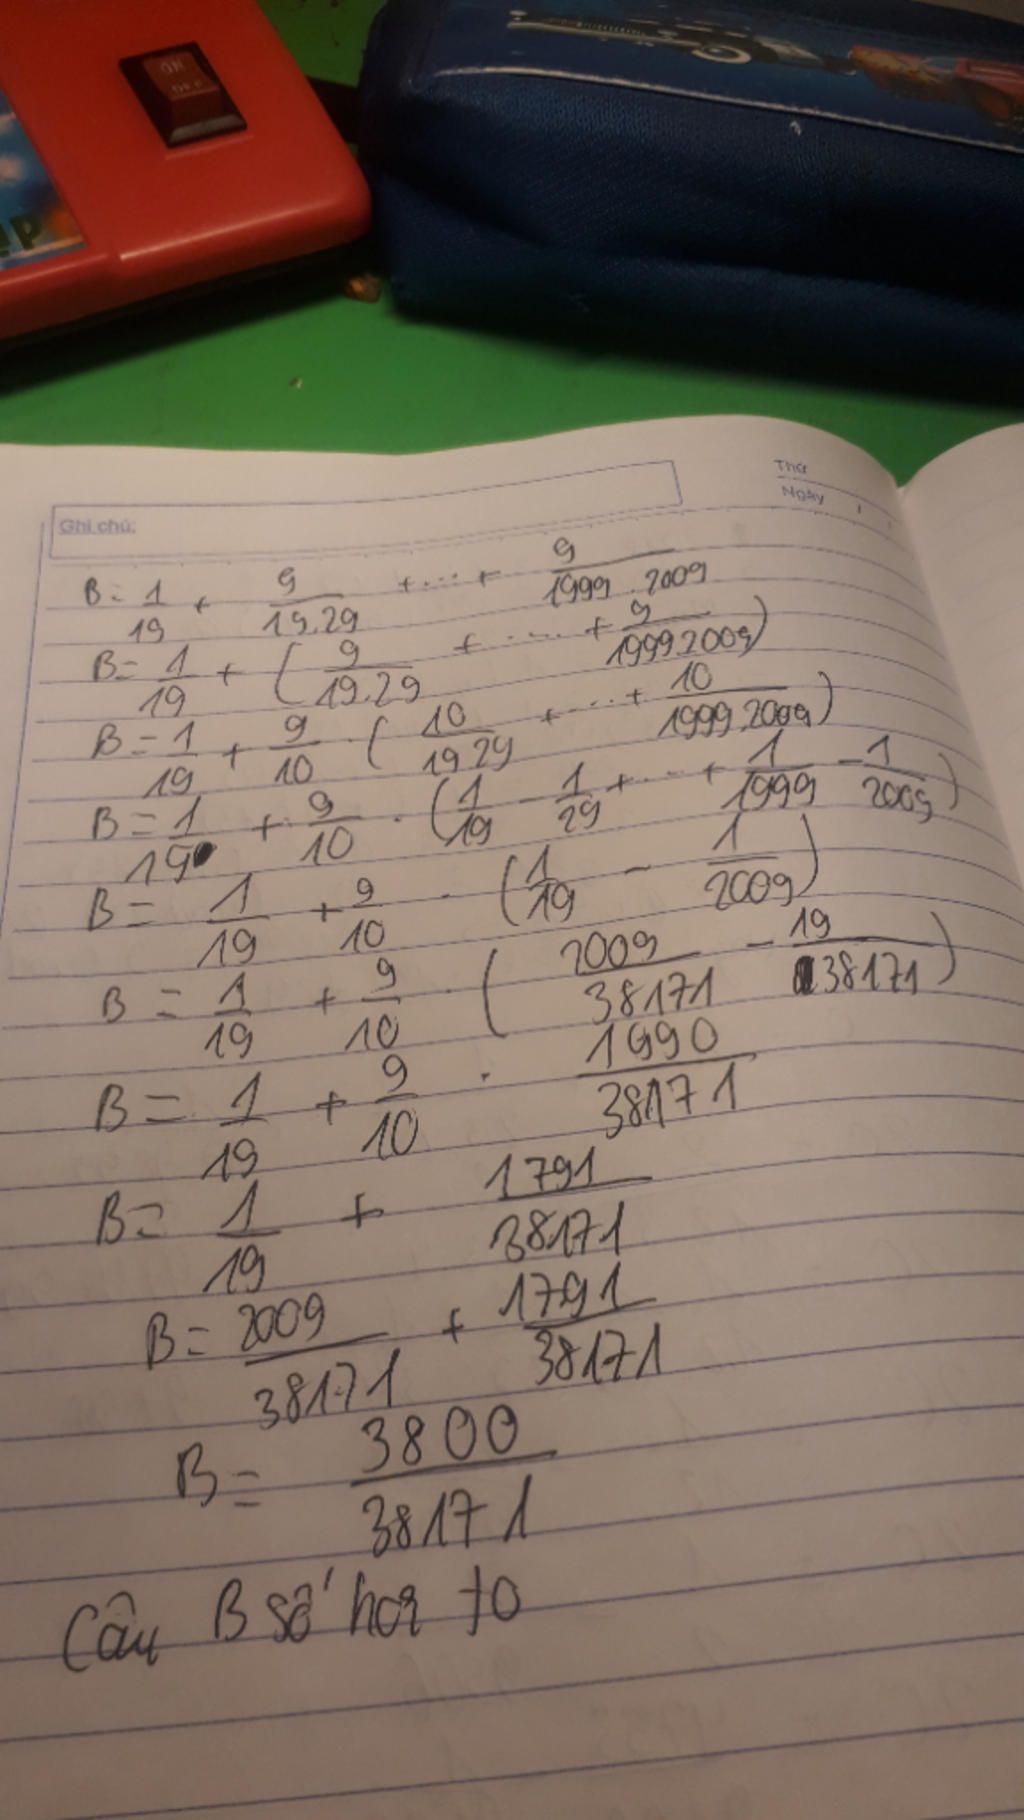 ON
OFF
Ghi chú:
Thứ
Ngày
B = 1/19 + 9/19.29 + .... + 9/1999.2009
B = 1/19 + ( 9/19.29 + ..... + 9/1999.2009 )
B = 1/19 + 9/10 . ( 10/19.29 + .... + 10/1999.2009 )
B = 1/19 + 9/10 . ( 1/19 - 1/29 + ... + 1/1999 - 1/2009 )
B = 1/19 + 9/10 . ( 1/19 - 1/2009 )
B = 1/19 + 9/10 . ( 2009/38171 - 19/38171 )
B = 1/19 + 9/10 . 1990/38171
B = 1/19 + 1791/38171
B = 2009/38171 + 1791/38171
B = 3800/38171
Câu B số hơi to